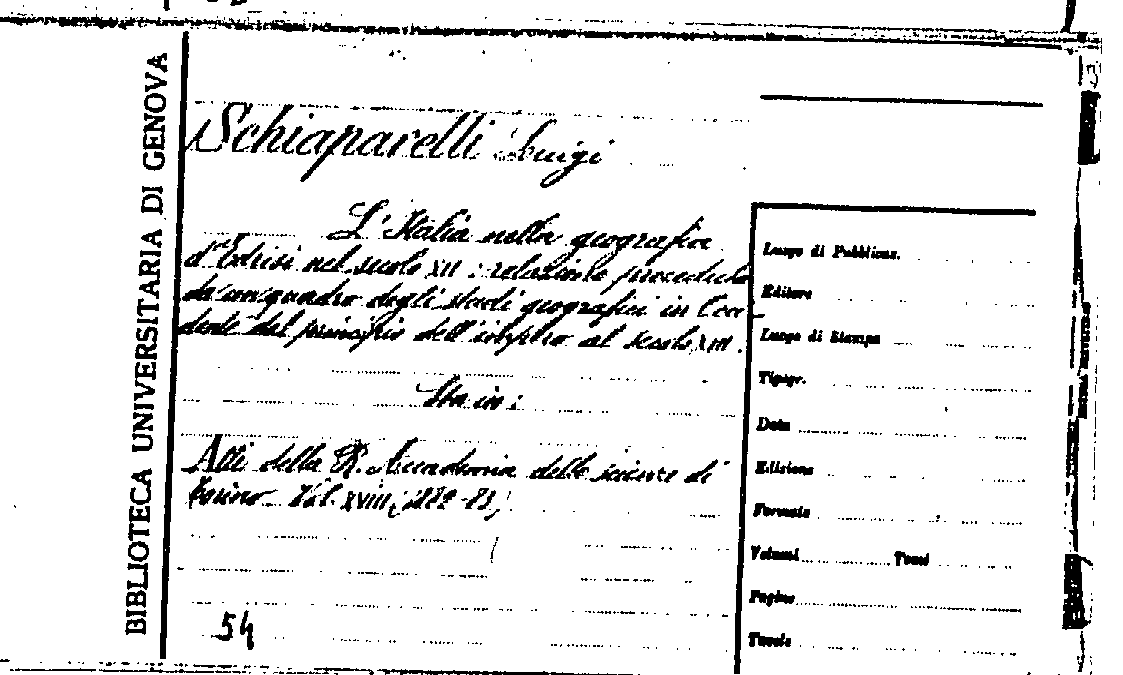 BIBLIOTECA UNIVERSITARIA DI GENOVA
Schiaparelli Luigi
L'Italia nella geografia
d'Edrisi nel secolo XII : relazione preceduta
da un quadro degli studi geografici in Occi-
dente dal principio dell' al secolo XIII.
Sta in :
Atti della R. Accademia delle scienze di
Torino. Vol. XVIII, (1882-83)
54
Luogo di Pubblicaz.
Editore
Luogo di Stampa
Tipogr.
Data
Edizione
Formato
Volumi Tomi
Pagine
Tavole